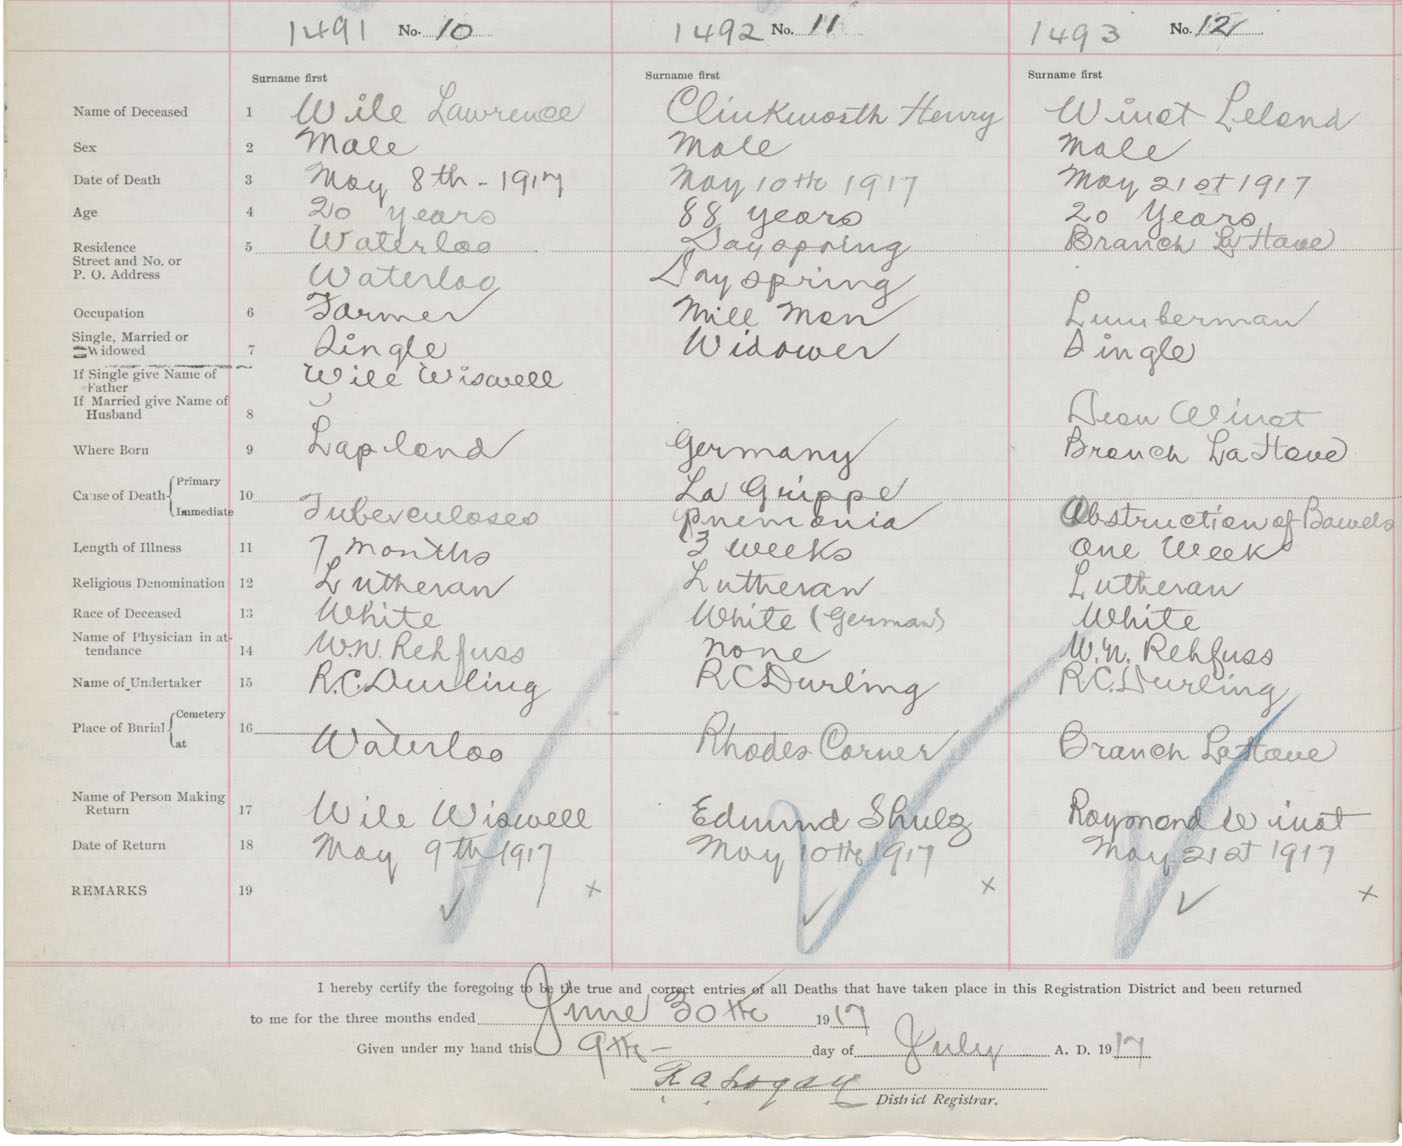 1491 No. 10 1492 No. 11 1493 No. 12
Surname first Surname first Surname first
Name of Deceased 1 Wile Lawrence Clinkworth Henry Winot Leland
Sex 2 Male Male Male
Date of Death 3 May 8th - 1917 May 10th 1917 May 21st 1917
Age 4 20 years 88 years 20 Years
Residence 5 Waterloo Dayspring Branch La Have
Street and No. or
P. O. Address Waterloo Dayspring
Occupation 6 Farmer Mill Man Lumberman
Single, Married or
Widowed 7 Single Widower Single
If Single give Name of Wile Wiswell
Father
If Married give Name of
Husband 8 Dean Winot
Where Born 9 Lapland Germany Branch La Have
Primary La Grippe
Cause of Death 10
Immediate Tuberculoses Pnemonia Obstruction of Bowels
Length of Illness 11 7 months 3 weeks One Week
Religious Denomination 12 Lutheran Lutheran Lutheran
Race of Deceased 13 White White (German) White
Name of Physician in at-
tendance 14 W.N. Rehfuss none W.N. Rehfuss
Name of Undertaker 15 R.C. Durling R C Durling R.C. Durling
Cemetery
Place of Burial 16
at Waterloo Rhodes Corner Branch LaHave
Name of Person Making
Return 17 Wile Wiswell Edmund Shulz Raymond Winot
Date of Return 18 May 9th 1917 May 10th 1917 May 21st 1917
REMARKS 19 x x x
I hereby certify the foregoing to be the true and correct entries of all Deaths that have taken place in this Registration District and been returned
to me for the three months ended June 30th 1917
Given under my hand this 9th - day of July A. D. 1917
R A Logan
District Registrar.